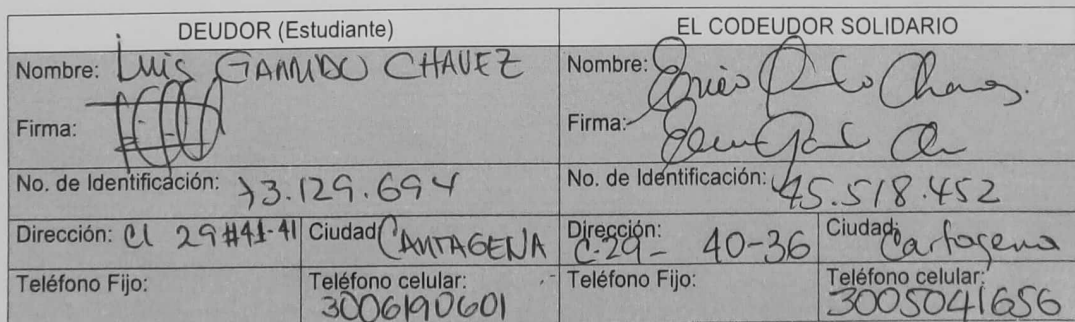 DEUDOR (Estudiante)
EL CODEUDOR SOLIDARIO
Nombre: Luis GARRIDO CHAVEZ
Nombre:
Firma:
Firma:
No. de Identificación: 73.129.694
No. de Identificación: 45.518.452
Dirección: Cl 29#41-41 Ciudad CARTAGENA
Dirección: C-29- 40-36 Ciudad: Cartagena
Teléfono Fijo:
Teléfono celular: 3006190601
Teléfono Fijo:
Teléfono celular: 3005041656